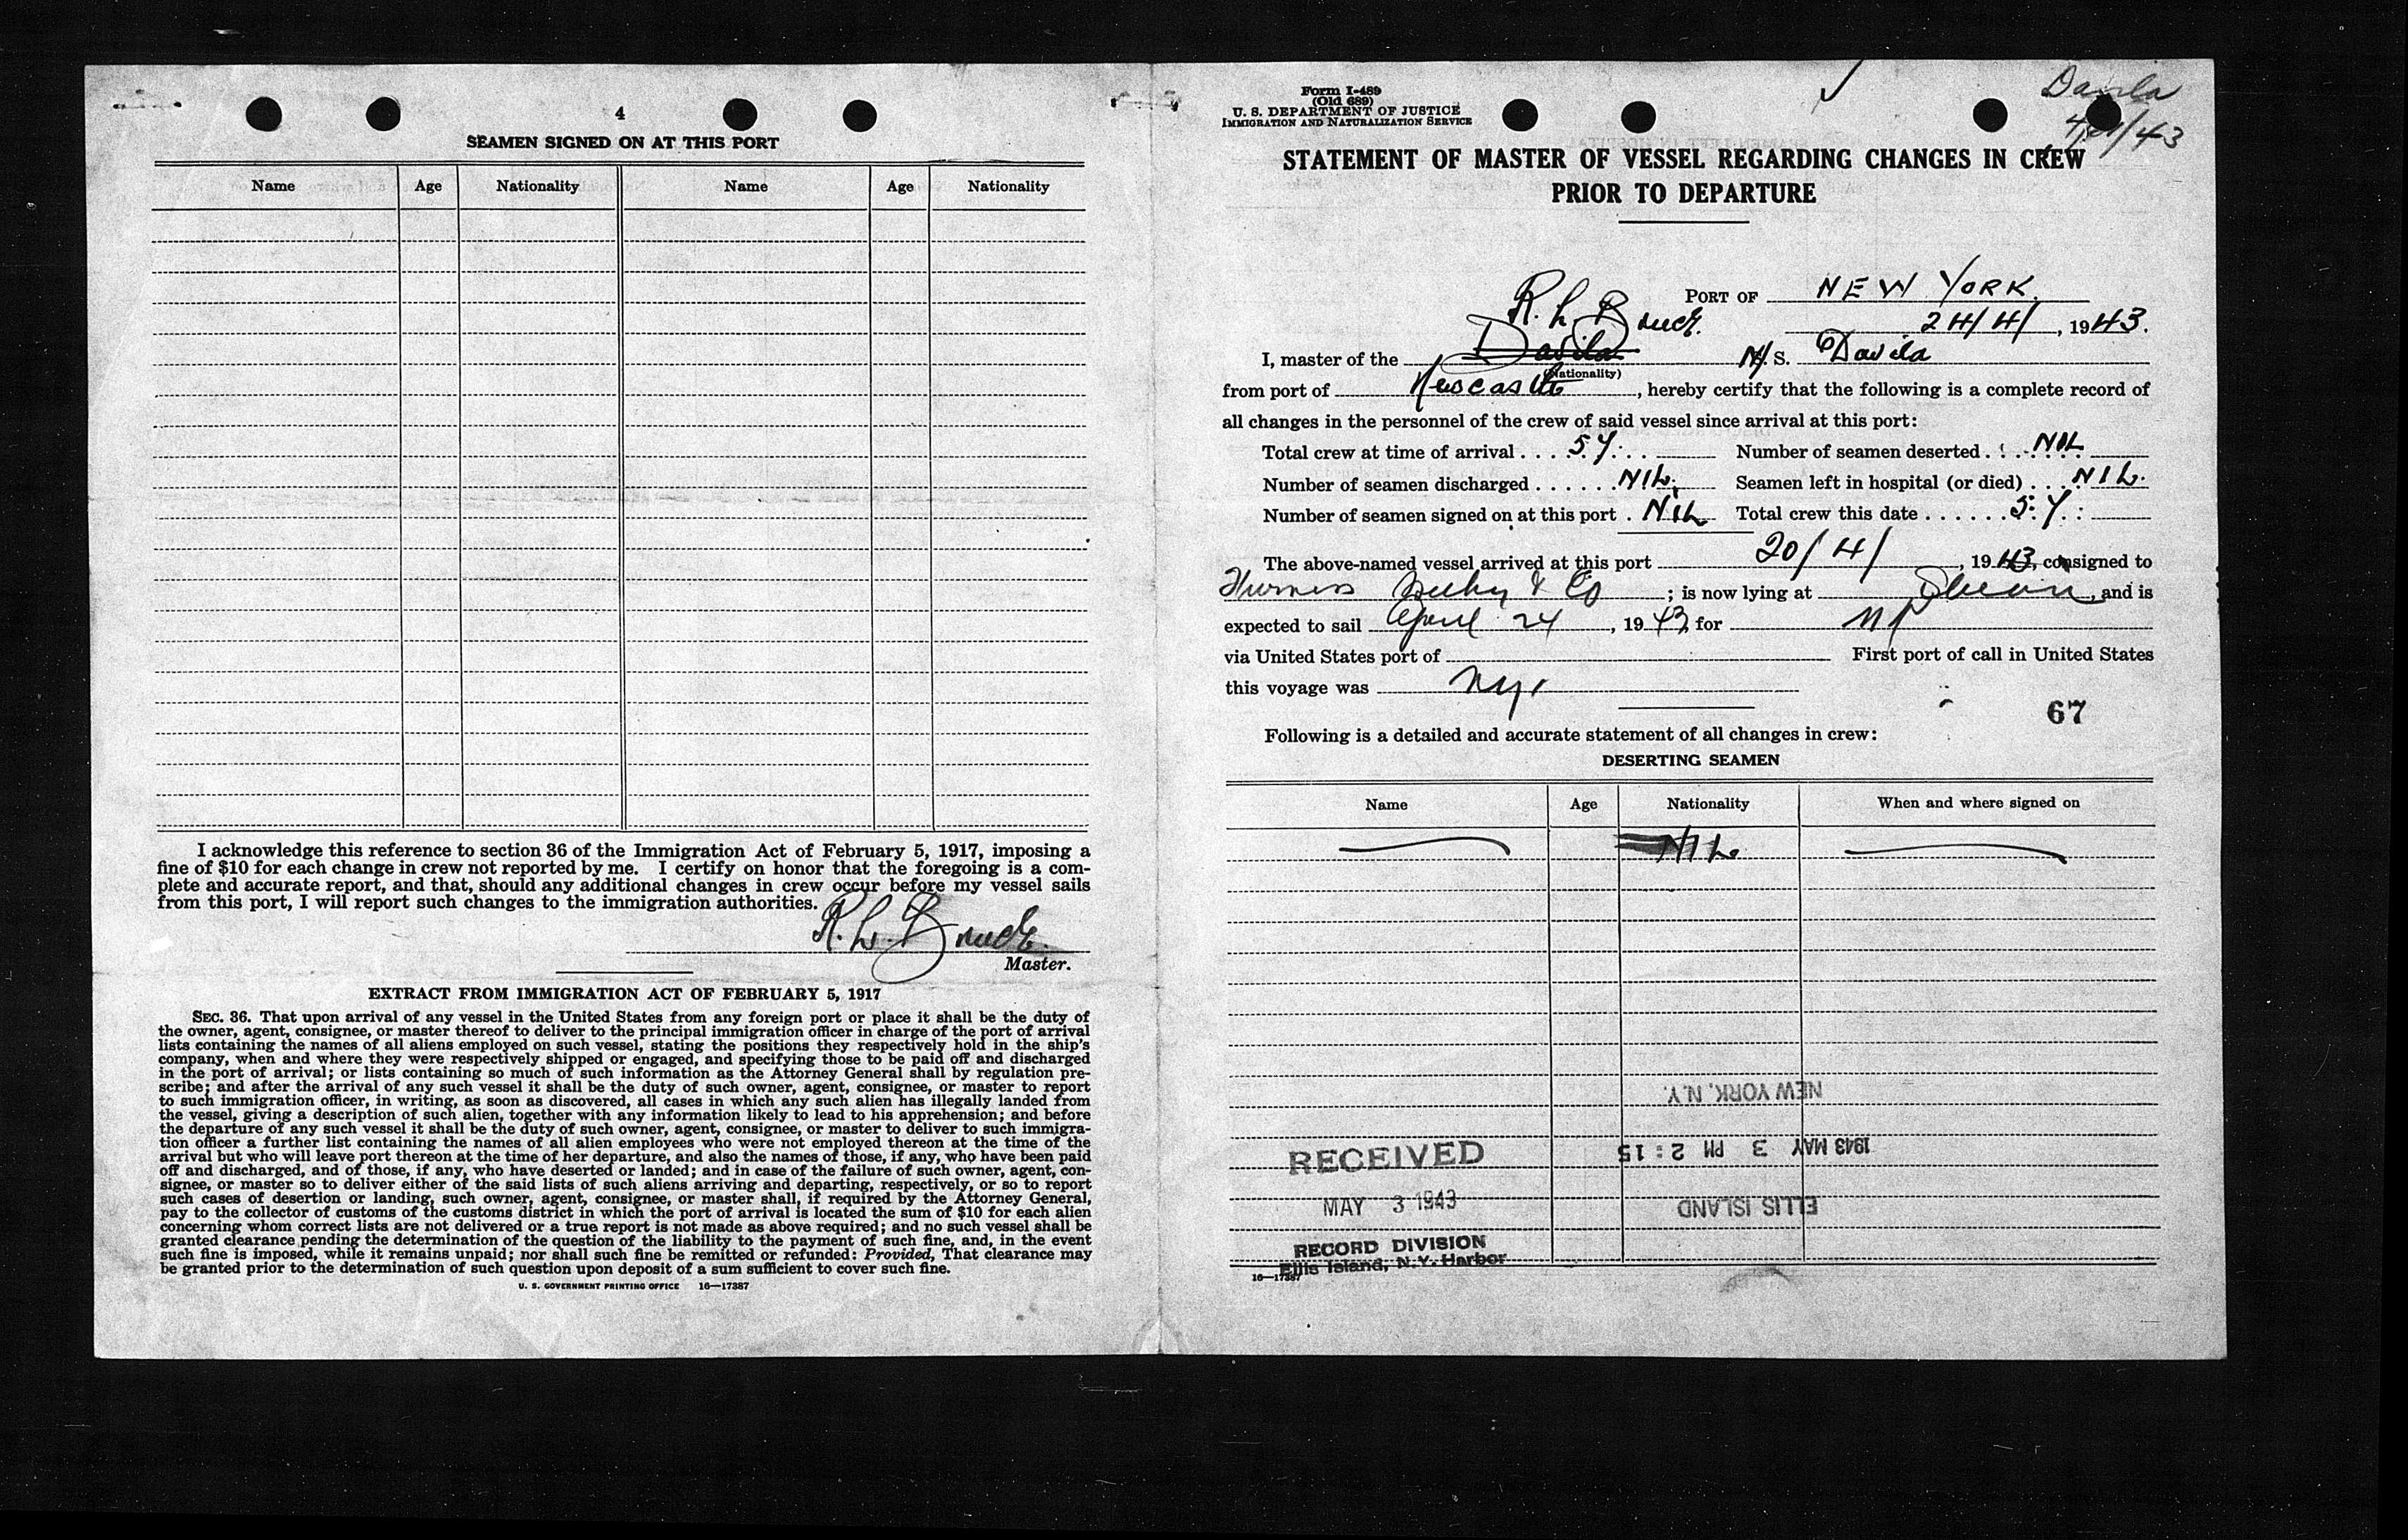 4
SEAMEN SIGNED ON AT THIS PORT
Name Age Nationality Name Age Nationality
I acknowledge this reference to section 36 of the Immigration Act of February 5, 1917, imposing a
fine of $10 for each change in crew not reported by me. I certify on honor that the foregoing is a com-
plete and accurate report, and that, should any additional changes in crew occur before my vessel sails
from this port, I will report such changes to the immigration authorities.
R. L. B
Master.
EXTRACT FROM IMMIGRATION ACT OF FEBRUARY 5, 1917
SEC. 36. That upon arrival of any vessel in the United States from any foreign port or place it shall be the duty of
the owner, agent, consignee, or master thereof to deliver to the principal immigration officer in charge of the port of arrival
lists containing the names of all aliens employed on such vessel, stating the positions they respectively hold in the ship's
company, when and where they were respectively shipped or engaged, and specifying those to be paid off and discharged
in the port of arrival; or lists containing so much of such information as the Attorney General shall by regulation pre-
scribe; and after the arrival of any such vessel it shall be the duty of such owner, agent, consignee, or master to report
to such immigration officer, in writing, as soon as discovered, all cases in which any such alien has illegally landed from
the vessel, giving a description of such alien, together with any information likely to lead to his apprehension; and before
the departure of any such vessel it shall be the duty of such owner, agent, consignee, or master to deliver to such immigra-
tion officer a further list containing the names of all alien employees who were not employed thereon at the time of the
arrival but who will leave port thereon at the time of her departure, and also the names of those, if any, who have been paid
off and discharged, and of those, if any, who have deserted or landed; and in case of the failure of such owner, agent, con-
signee, or master so to deliver either of the said lists of such aliens arriving and departing, respectively, or so to report
such cases of desertion or landing, such owner, agent, consignee, or master shall, if required by the Attorney General,
pay to the collector of customs of the customs district in which the port of arrival is located the sum of $10 for each alien
concerning whom correct lists are not delivered or a true report is not made as above required; and no such vessel shall be
granted clearance pending the determination of the question of the liability to the payment of such fine, and, in the event
such fine is imposed, while it remains unpaid; nor shall such fine be remitted or refunded: Provided, That clearance may
be granted prior to the determination of such question upon deposit of a sum sufficient to cover such fine.
U. S. GOVERNMENT PRINTING OFFICE 16—17387
Form I-489
(Old 689)
U. S. DEPARTMENT OF JUSTICE
IMMIGRATION AND NATURALIZATION SERVICE
Davila
/43
STATEMENT OF MASTER OF VESSEL REGARDING CHANGES IN CREW
PRIOR TO DEPARTURE
PORT OF NEW YORK.
R. L. B
24/4/, 1943.
I, master of the Davila M/.S. Davila
(Nationality)
from port of Newcastle, hereby certify that the following is a complete record of
all changes in the personnel of the crew of said vessel since arrival at this port:
Total crew at time of arrival . . . 57. Number of seamen deserted . . . NIL
Number of seamen discharged . . . . . . NIL. Seamen left in hospital (or died) . . . NIL.
Number of seamen signed on at this port . NIL Total crew this date . . . . . . 57.
The above-named vessel arrived at this port 20/4/, 1943, consigned to
Furness Withy & Co; is now lying at , and is
expected to sail April 24, 1943 for
via United States port of First port of call in United States
this voyage was NY
67
Following is a detailed and accurate statement of all changes in crew:
DESERTING SEAMEN
Name Age Nationality When and where signed on
NIL
NEW YORK, N.Y.
1943 MAY 3 PM 2:15
ELLIS ISLAND
RECEIVED
MAY 3 1943
RECORD DIVISION
Ellis Island, N.Y. Harbor
16—17387